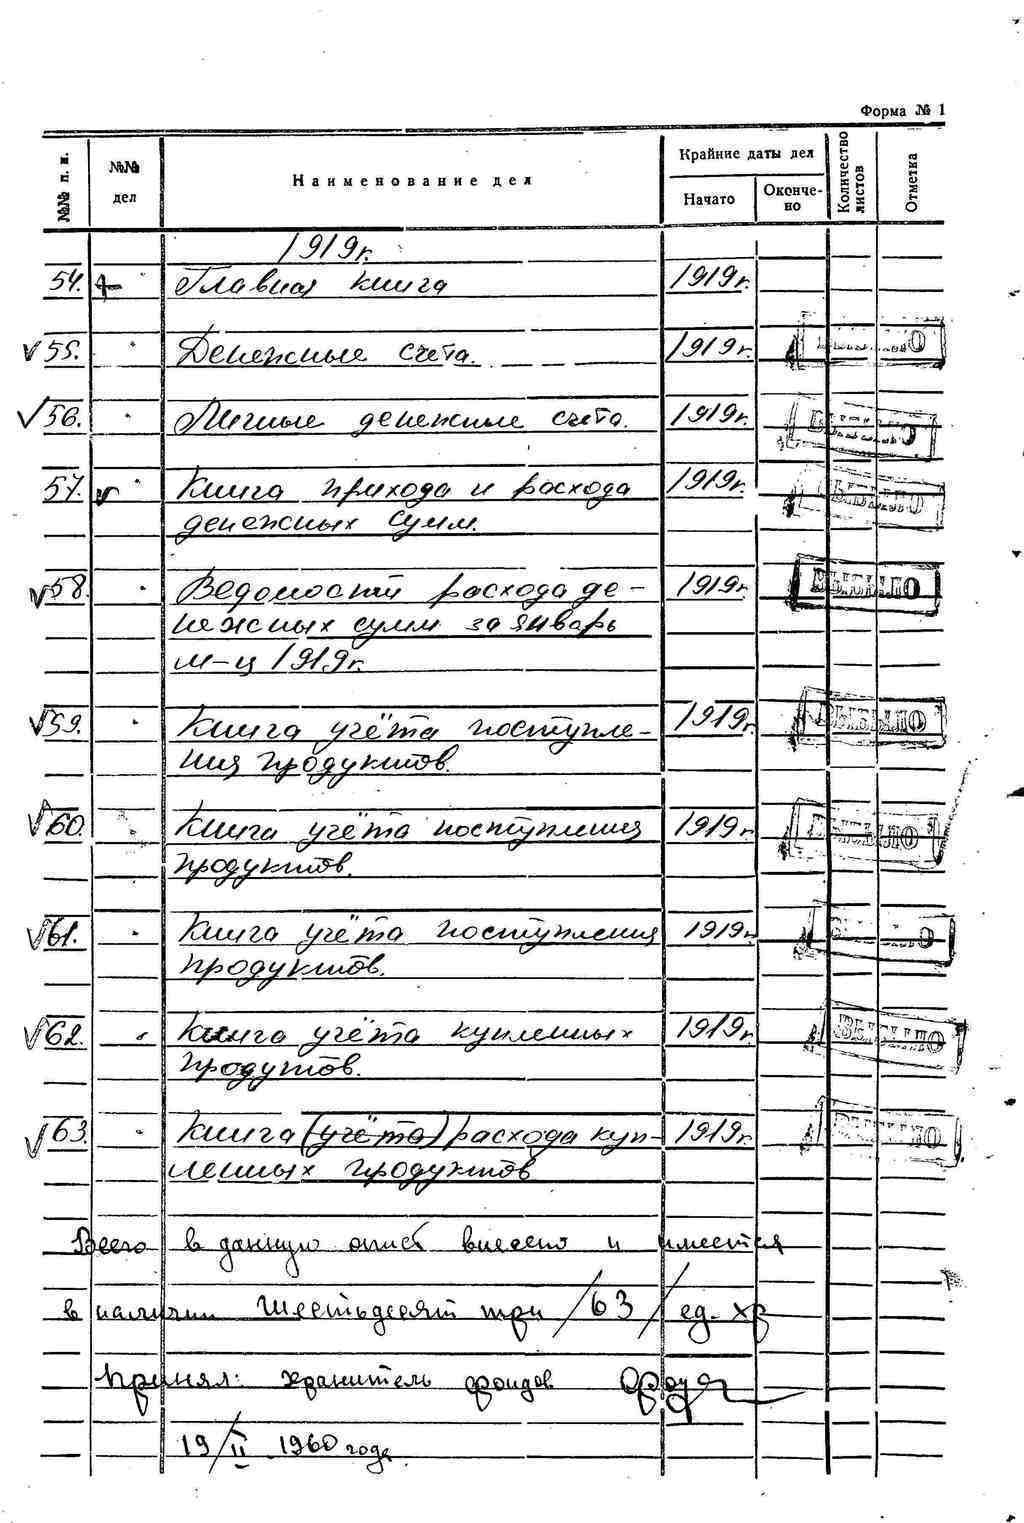 Форма № 1
№№ п. п.
№№ дел
Наименование дел
Крайние даты дел
Начато
Окончено
Количество листов
Отметка
1919г.
54. " Главная книга 1919г.
√ 55. " Денежные счета. 1919г. ВЫБЫЛО
√ 56. " Личные денежные счета. 1919г. ВЫБЫЛО
57. √ " Книга прихода и расхода 1919г. ВЫБЫЛО
денежных сумм.
√ 58. " Ведомости расхода де- 1919г. ВЫБЫЛО
нежных сумм за январь
м-ц 1919г.
√ 59. " Книга учёта поступле- 1919г. ВЫБЫЛО
ния продуктов.
√ 60. " Книга учёта поступления 1919г. ВЫБЫЛО
продуктов.
√ 61. " Книга учёта поступления 1919г. ВЫБЫЛО
продуктов.
√ 62. " Книга учёта купленных 1919г. ВЫБЫЛО
продутов.
√ 63. " Книга (учёта) расхода куп- 1919г. ВЫБЫЛО
ленных продуктов
Всего в данную опись внесено и имеется
в наличии шестьдесят три /63/ ед. хр
Принял: хранитель фондов
19/II 1960 года.